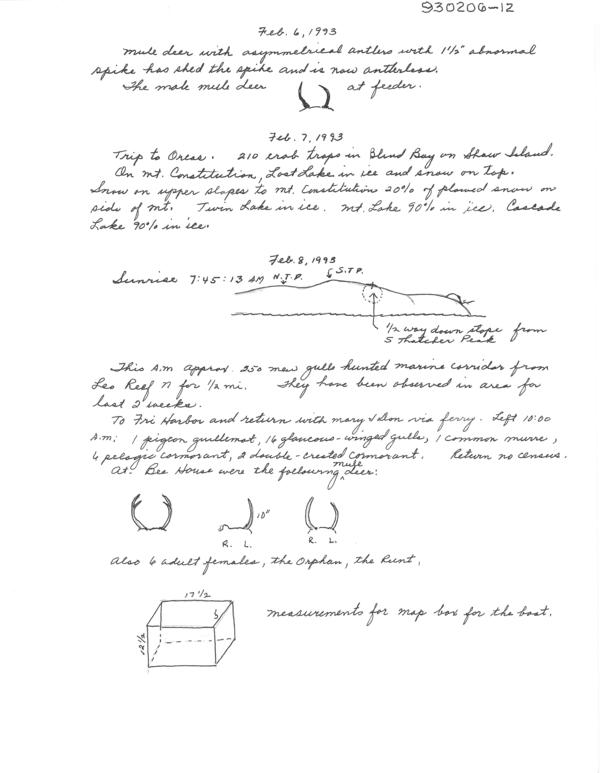 930206-12
Feb. 6, 1993
Mule deer with asymmetrical antlers with 1 1/2" abnormal
spike has shed the spike and is now antlerless.
The male mule deer at feeder.
Feb. 7, 1993
Trip to Orcas. 210 crab traps in Blind Bay on Shaw Island.
On Mt. Constitution, Lost Lake in ice and snow on top.
Snow on upper slopes to Mt. Constitution 20% of plowed snow on
side of mt. Twin Lake in ice. Mt. Lake 90% in ice. Cascade
Lake 90% in ice.
Feb. 8, 1993
Sunrise 7:45:13 AM N.T.P. S.T.P.
1/2 way down slope from
S Thatcher Peak
This A.M. approx. 250 mew gulls hunted marine corridor from
Leo Reef N for 1/2 mi. They have been observed in area for
last 2 weeks.
To Fri Harbor and return with Mary & Don via ferry. Left 10:00
A.M: 1 pigeon guillemot, 16 glaucous-winged gulls, 1 common murre,
6 pelagic cormorant, 2 double-crested cormorant. Return no census.
At: Bee House were the following mule deer:
10"
R. L. R. L.
Also 6 adult females, the Orphan, the Runt.
17 1/2
12 1/2
measurements for map box for the boat.